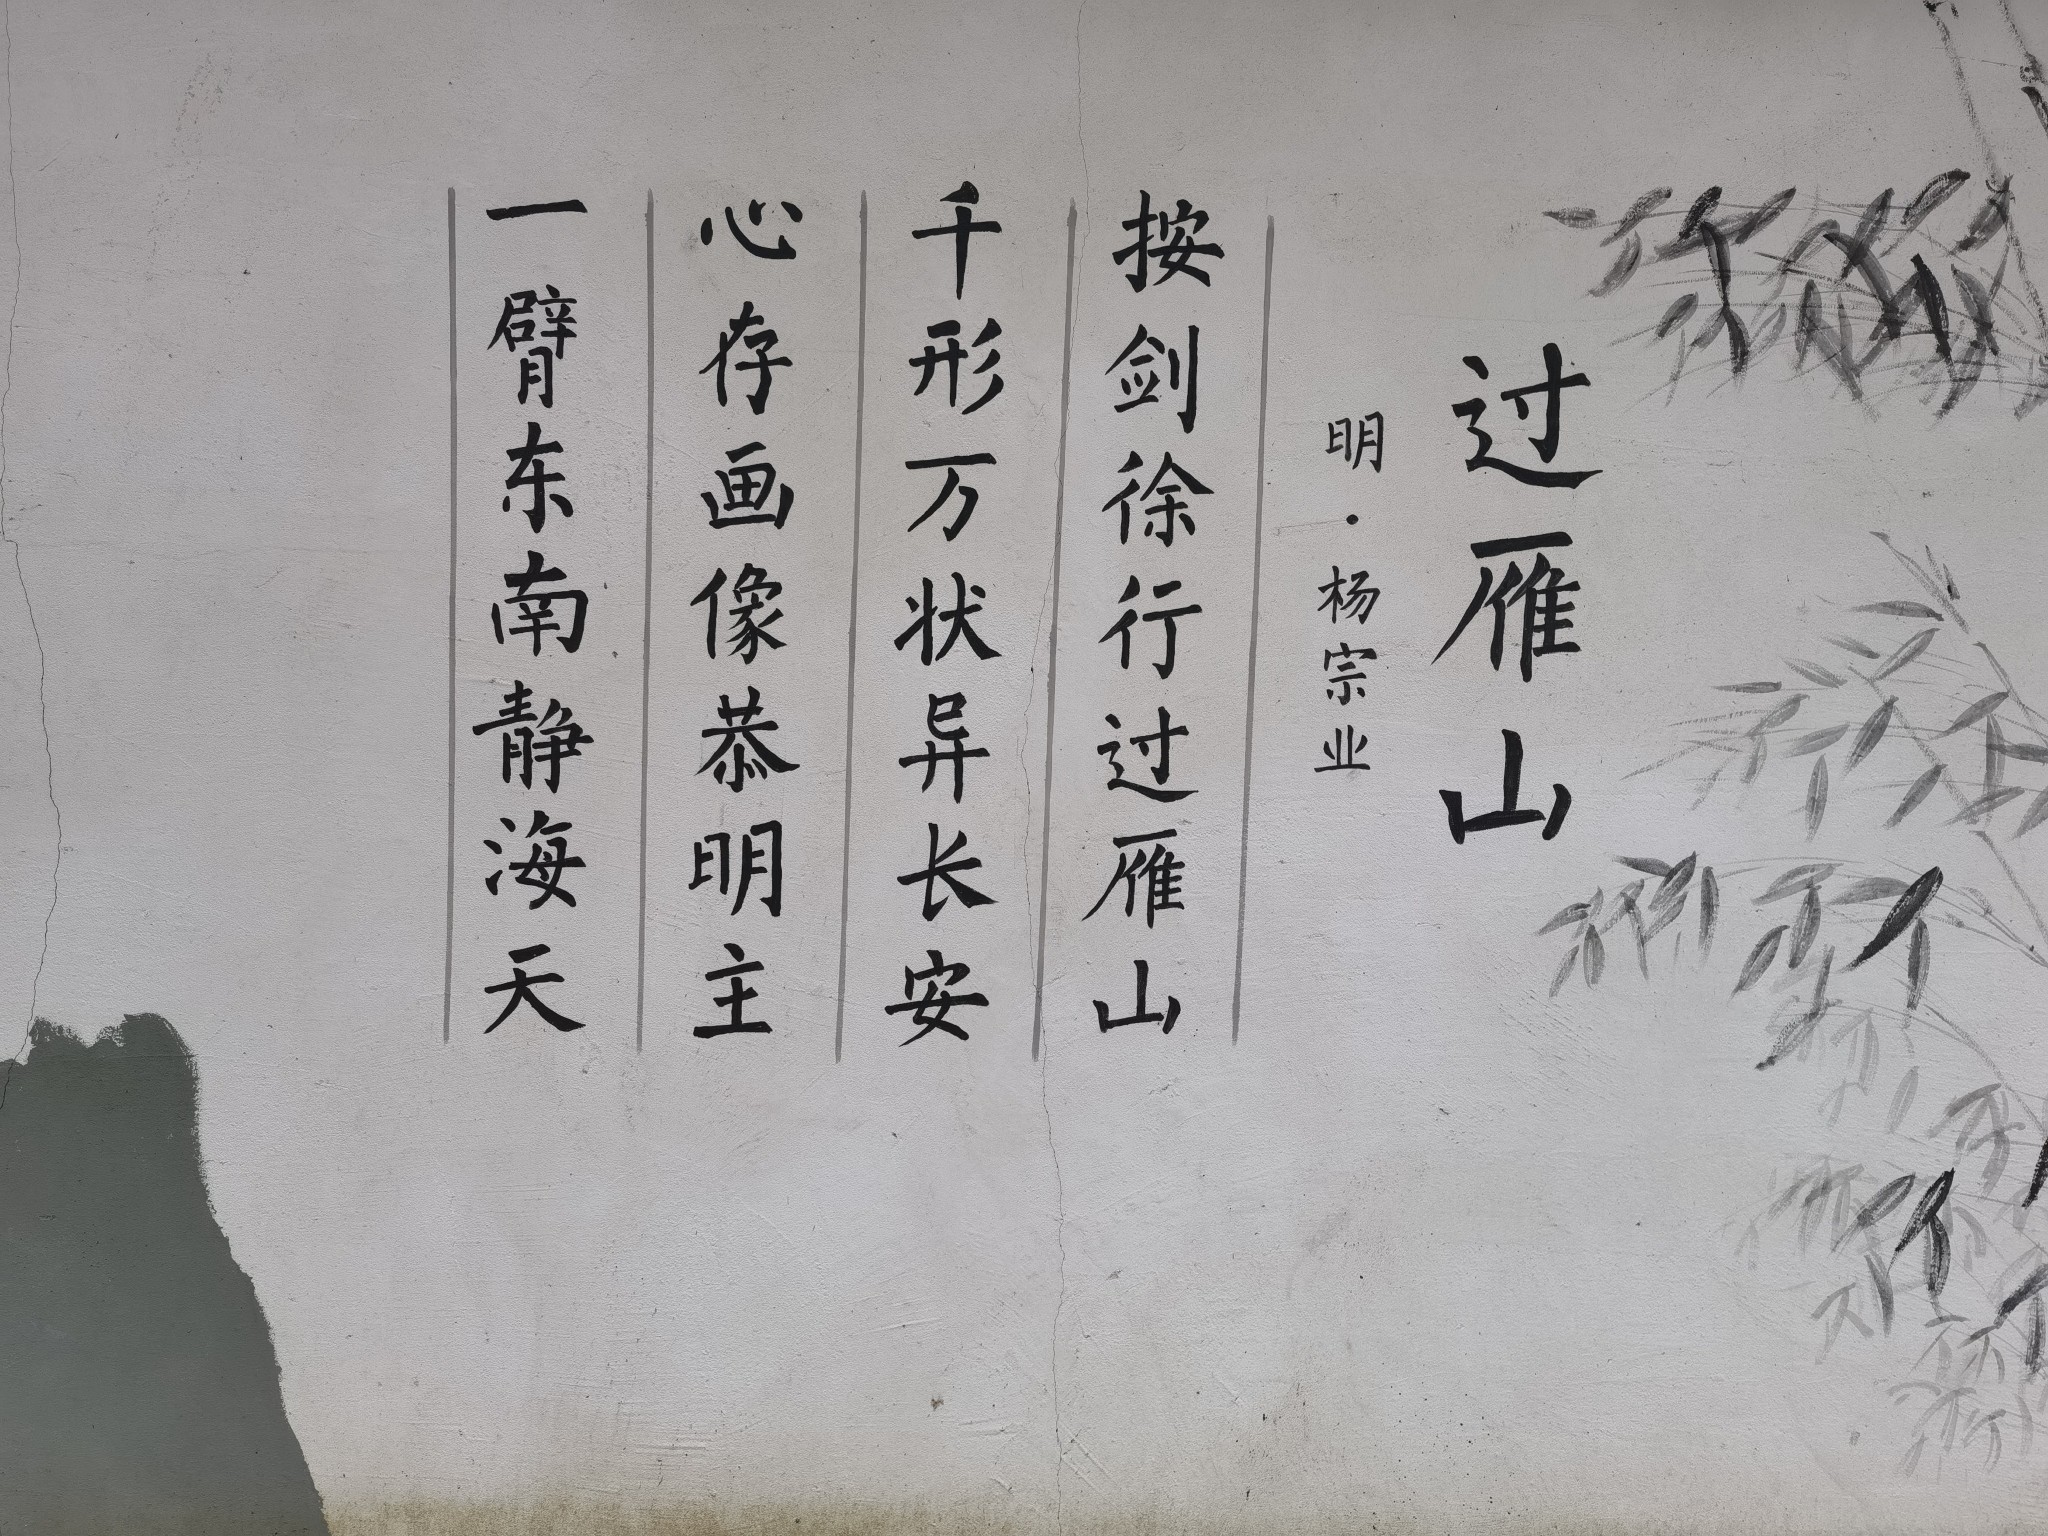 过雁山
明·杨宗业
按剑徐行过雁山
千形万状异长安
心存画像恭明主
一臂东南静海天